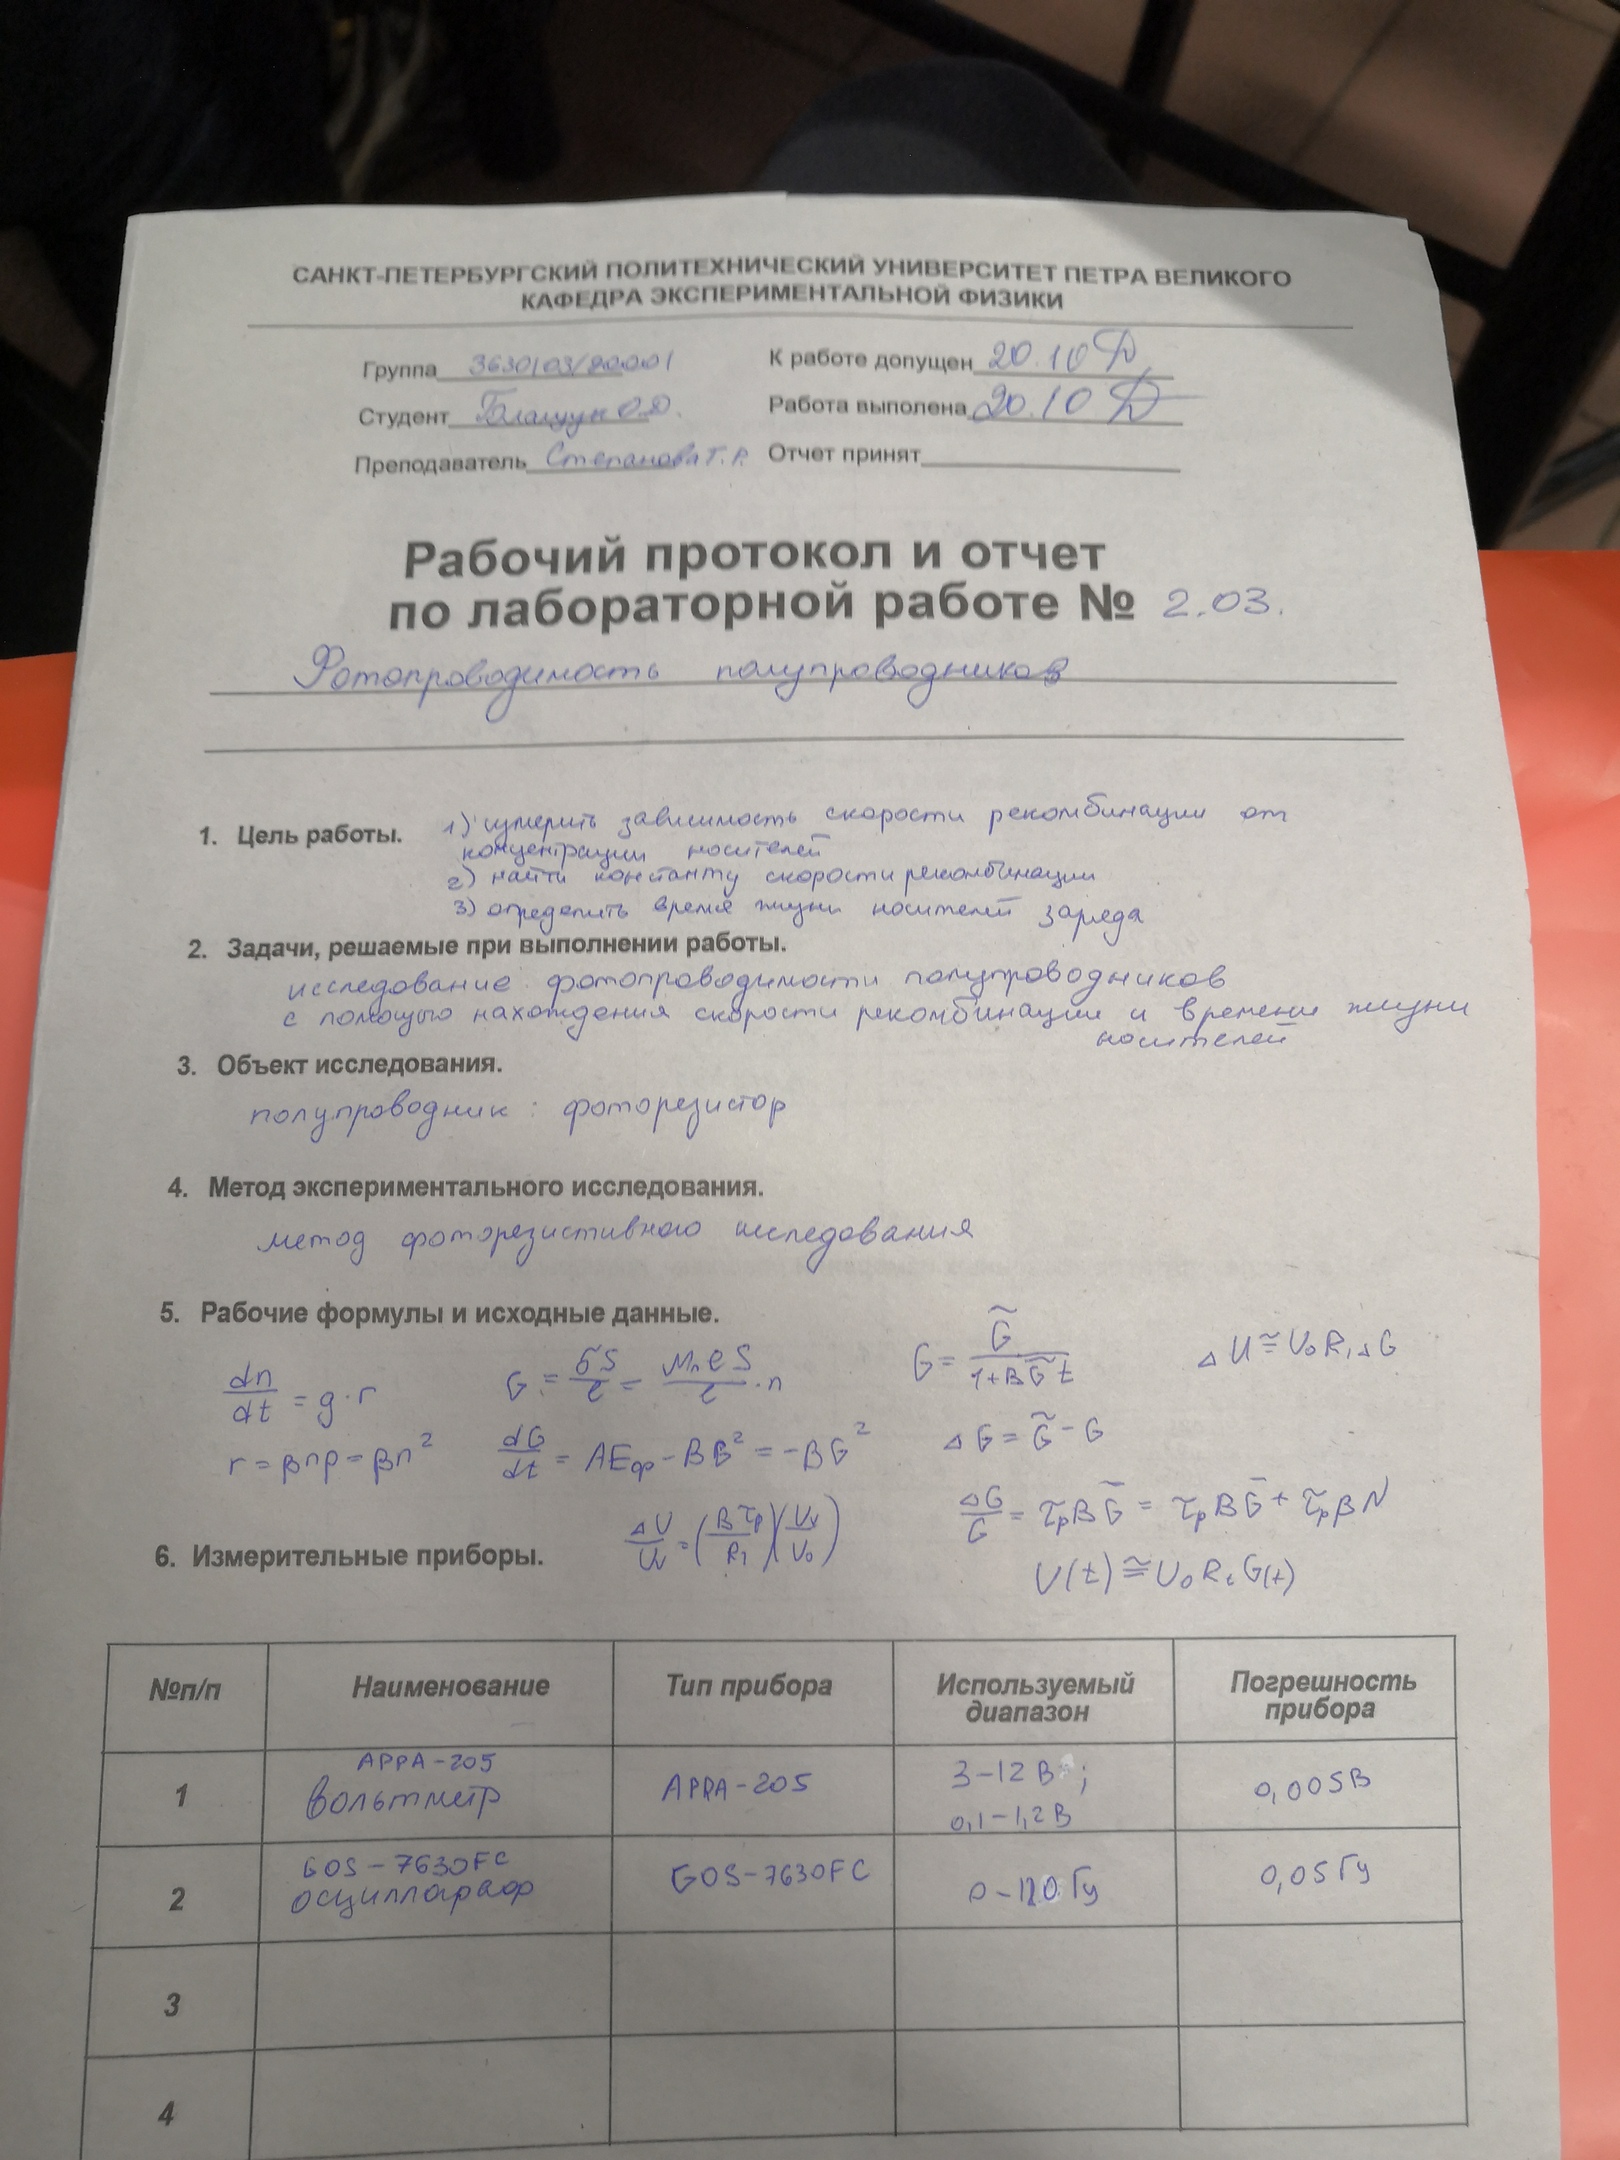 САНКТ-ПЕТЕРБУРГСКИЙ ПОЛИТЕХНИЧЕСКИЙ УНИВЕРСИТЕТ ПЕТРА ВЕЛИКОГО
КАФЕДРА ЭКСПЕРИМЕНТАЛЬНОЙ ФИЗИКИ
Группа 3630103/80001 К работе допущен 20.10
Студент О.Д. Работа выполена 20.10
Преподаватель Степанова Т.Р. Отчет принят
Рабочий протокол и отчет
по лабораторной работе № 2.03.
Фотопроводимость полупроводников
1. Цель работы. 1) измерить зависимость скорости рекомбинации от
концентрации носителей
2) найти константу скорости рекомбинации
3) определить время жизни носителей заряда
2. Задачи, решаемые при выполнении работы.
исследование фотопроводимости полупроводников
с помощью нахождения скорости рекомбинации и времени жизни
носителей
3. Объект исследования.
полупроводник: фоторезистор
4. Метод экспериментального исследования.
метод фоторезистивного исследования
5. Рабочие формулы и исходные данные.
dn/dt = g·r G = σS/l = μₙeS/l · n G = G̃/(1+BG̃t) ΔU≅U₀R₁ΔG
r = βnp = βn² dG/dt = AEф − BG² = −BG² ΔG = G̃ − G
ΔG/G = τₚBG̃ = τₚBG̃ + τₚβN
6. Измерительные приборы. ΔU/Uᵥ = (Bτₚ/R₁)(Uᵥ/U₀) U(t)≅U₀RₜG(t)
№п/п Наименование Тип прибора Используемый диапазон Погрешность прибора
1 APPA-205 вольтметр APPA-205 3-12 В; 0,1-1,2 В 0,005В
2 GOS-7630FC осциллограф GOS-7630FC 0-120 Гц 0,05 Гц
3
4